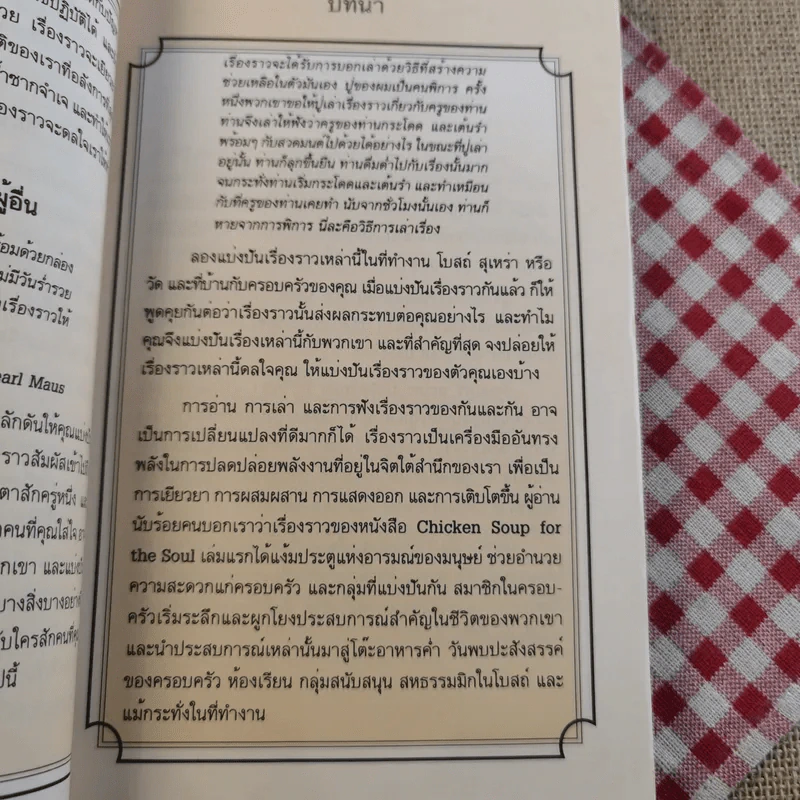 ปฏิบัติได้
วย เรื่องราวจะ
ติของเราที่อลังการ
ซากจำเจ และทำให้
องราวจะดลใจเรา
ผู้อื่น
้อมด้วยกล่อง
ไม่มีวันร่ำรวย
เรื่องราวให้
earl Maus
ลักดันให้คุณแบ่ง
ราวสัมผัสเข้าไป
ตาสักครู่หนึ่ง
คนที่คุณใส่ใจ
กเขา และแบ่ง
บางสิ่งบางอย่าง
ับใครสักคนที่
ปนี้
บทนำ
เรื่องราวจะได้รับการบอกเล่าด้วยวิธีที่สร้างความ
ช่วยเหลือในตัวมันเอง ปู่ของผมเป็นคนพิการ ครั้ง
หนึ่งพวกเขาขอให้ปู่เล่าเรื่องราวเกี่ยวกับครูของท่าน
ท่านจึงเล่าให้ฟังว่าครูของท่านกระโดด และเต้นรำ
พร้อมๆ กับสวดมนต์ไปด้วยได้อย่างไร ในขณะที่ปู่เล่า
อยู่นั้น ท่านก็ลุกขึ้นยืน ท่านดื่มด่ำไปกับเรื่องนั้นมาก
จนกระทั่งท่านเริ่มกระโดดและเต้นรำ และทำเหมือน
กับที่ครูของท่านเคยทำ นับจากชั่วโมงนั้นเอง ท่านก็
หายจากการพิการ นี่ละคือวิธีการเล่าเรื่อง
ลองแบ่งปันเรื่องราวเหล่านี้ในที่ทำงาน โบสถ์ สุเหร่า หรือ
วัด และที่บ้านกับครอบครัวของคุณ เมื่อแบ่งปันเรื่องราวกันแล้ว ก็ให้
พูดคุยกันต่อว่าเรื่องราวนั้นส่งผลกระทบต่อคุณอย่างไร และทำไม
คุณจึงแบ่งปันเรื่องเหล่านี้กับพวกเขา และที่สำคัญที่สุด จงปล่อยให้
เรื่องราวเหล่านี้ดลใจคุณ ให้แบ่งปันเรื่องราวของตัวคุณเองบ้าง
การอ่าน การเล่า และการฟังเรื่องราวของกันและกัน อาจ
เป็นการเปลี่ยนแปลงที่ดีมากก็ได้ เรื่องราวเป็นเครื่องมืออันทรง
พลังในการปลดปล่อยพลังงานที่อยู่ในจิตใต้สำนึกของเรา เพื่อเป็น
การเยียวยา การผสมผสาน การแสดงออก และการเติบโตขึ้น ผู้อ่าน
นับร้อยคนบอกเราว่าเรื่องราวของหนังสือ Chicken Soup for
the Soul เล่มแรกได้แง้มประตูแห่งอารมณ์ของมนุษย์ ช่วยอำนวย
ความสะดวกแก่ครอบครัว และกลุ่มที่แบ่งปันกัน สมาชิกในครอบ-
ครัวเริ่มระลึกและผูกโยงประสบการณ์สำคัญในชีวิตของพวกเขา
และนำประสบการณ์เหล่านั้นมาสู่โต๊ะอาหารค่ำ วันพบปะสังสรรค์
ของครอบครัว ห้องเรียน กลุ่มสนับสนุน สหธรรมมิกในโบสถ์ และ
แม้กระทั่งในที่ทำงาน